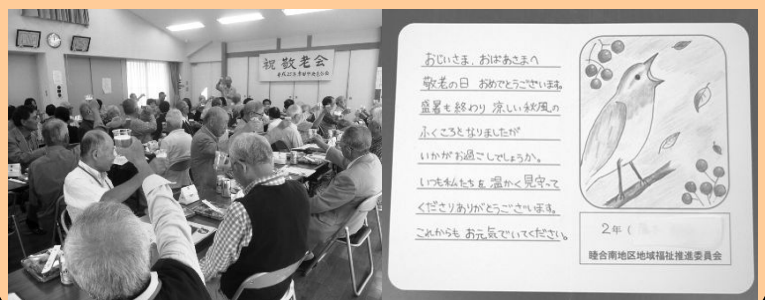 祝 敬老会
おじいさま、おばあさまへ
敬老の日 おめでとうございます。
盛暑も終わり 涼しい秋風の
ふくころとなりましたが
いかがお過ごしでしょうか。
いつも私たちを温かく見守って
くださりありがとうございます。
これからも お元気でいてください。
2年（
睦合南地区地域福祉推進委員会